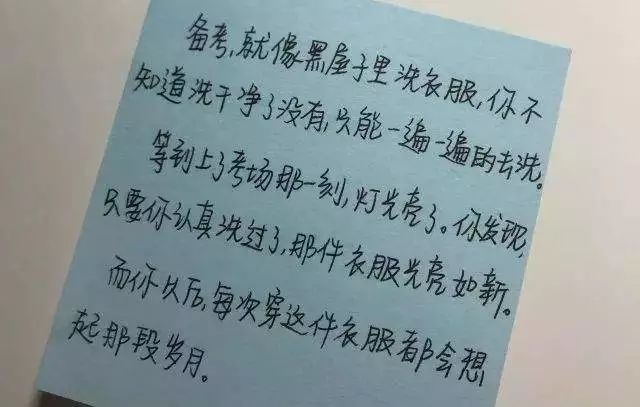 备考,就像黑屋子里洗衣服,你不
知道洗干净了没有,只能一遍一遍的去洗。
等到上了考场那一刻,灯光亮了。你发现,
只要你认真洗过了,那件衣服光亮如新。
而你以后,每次穿这件衣服都会想
起那段岁月。